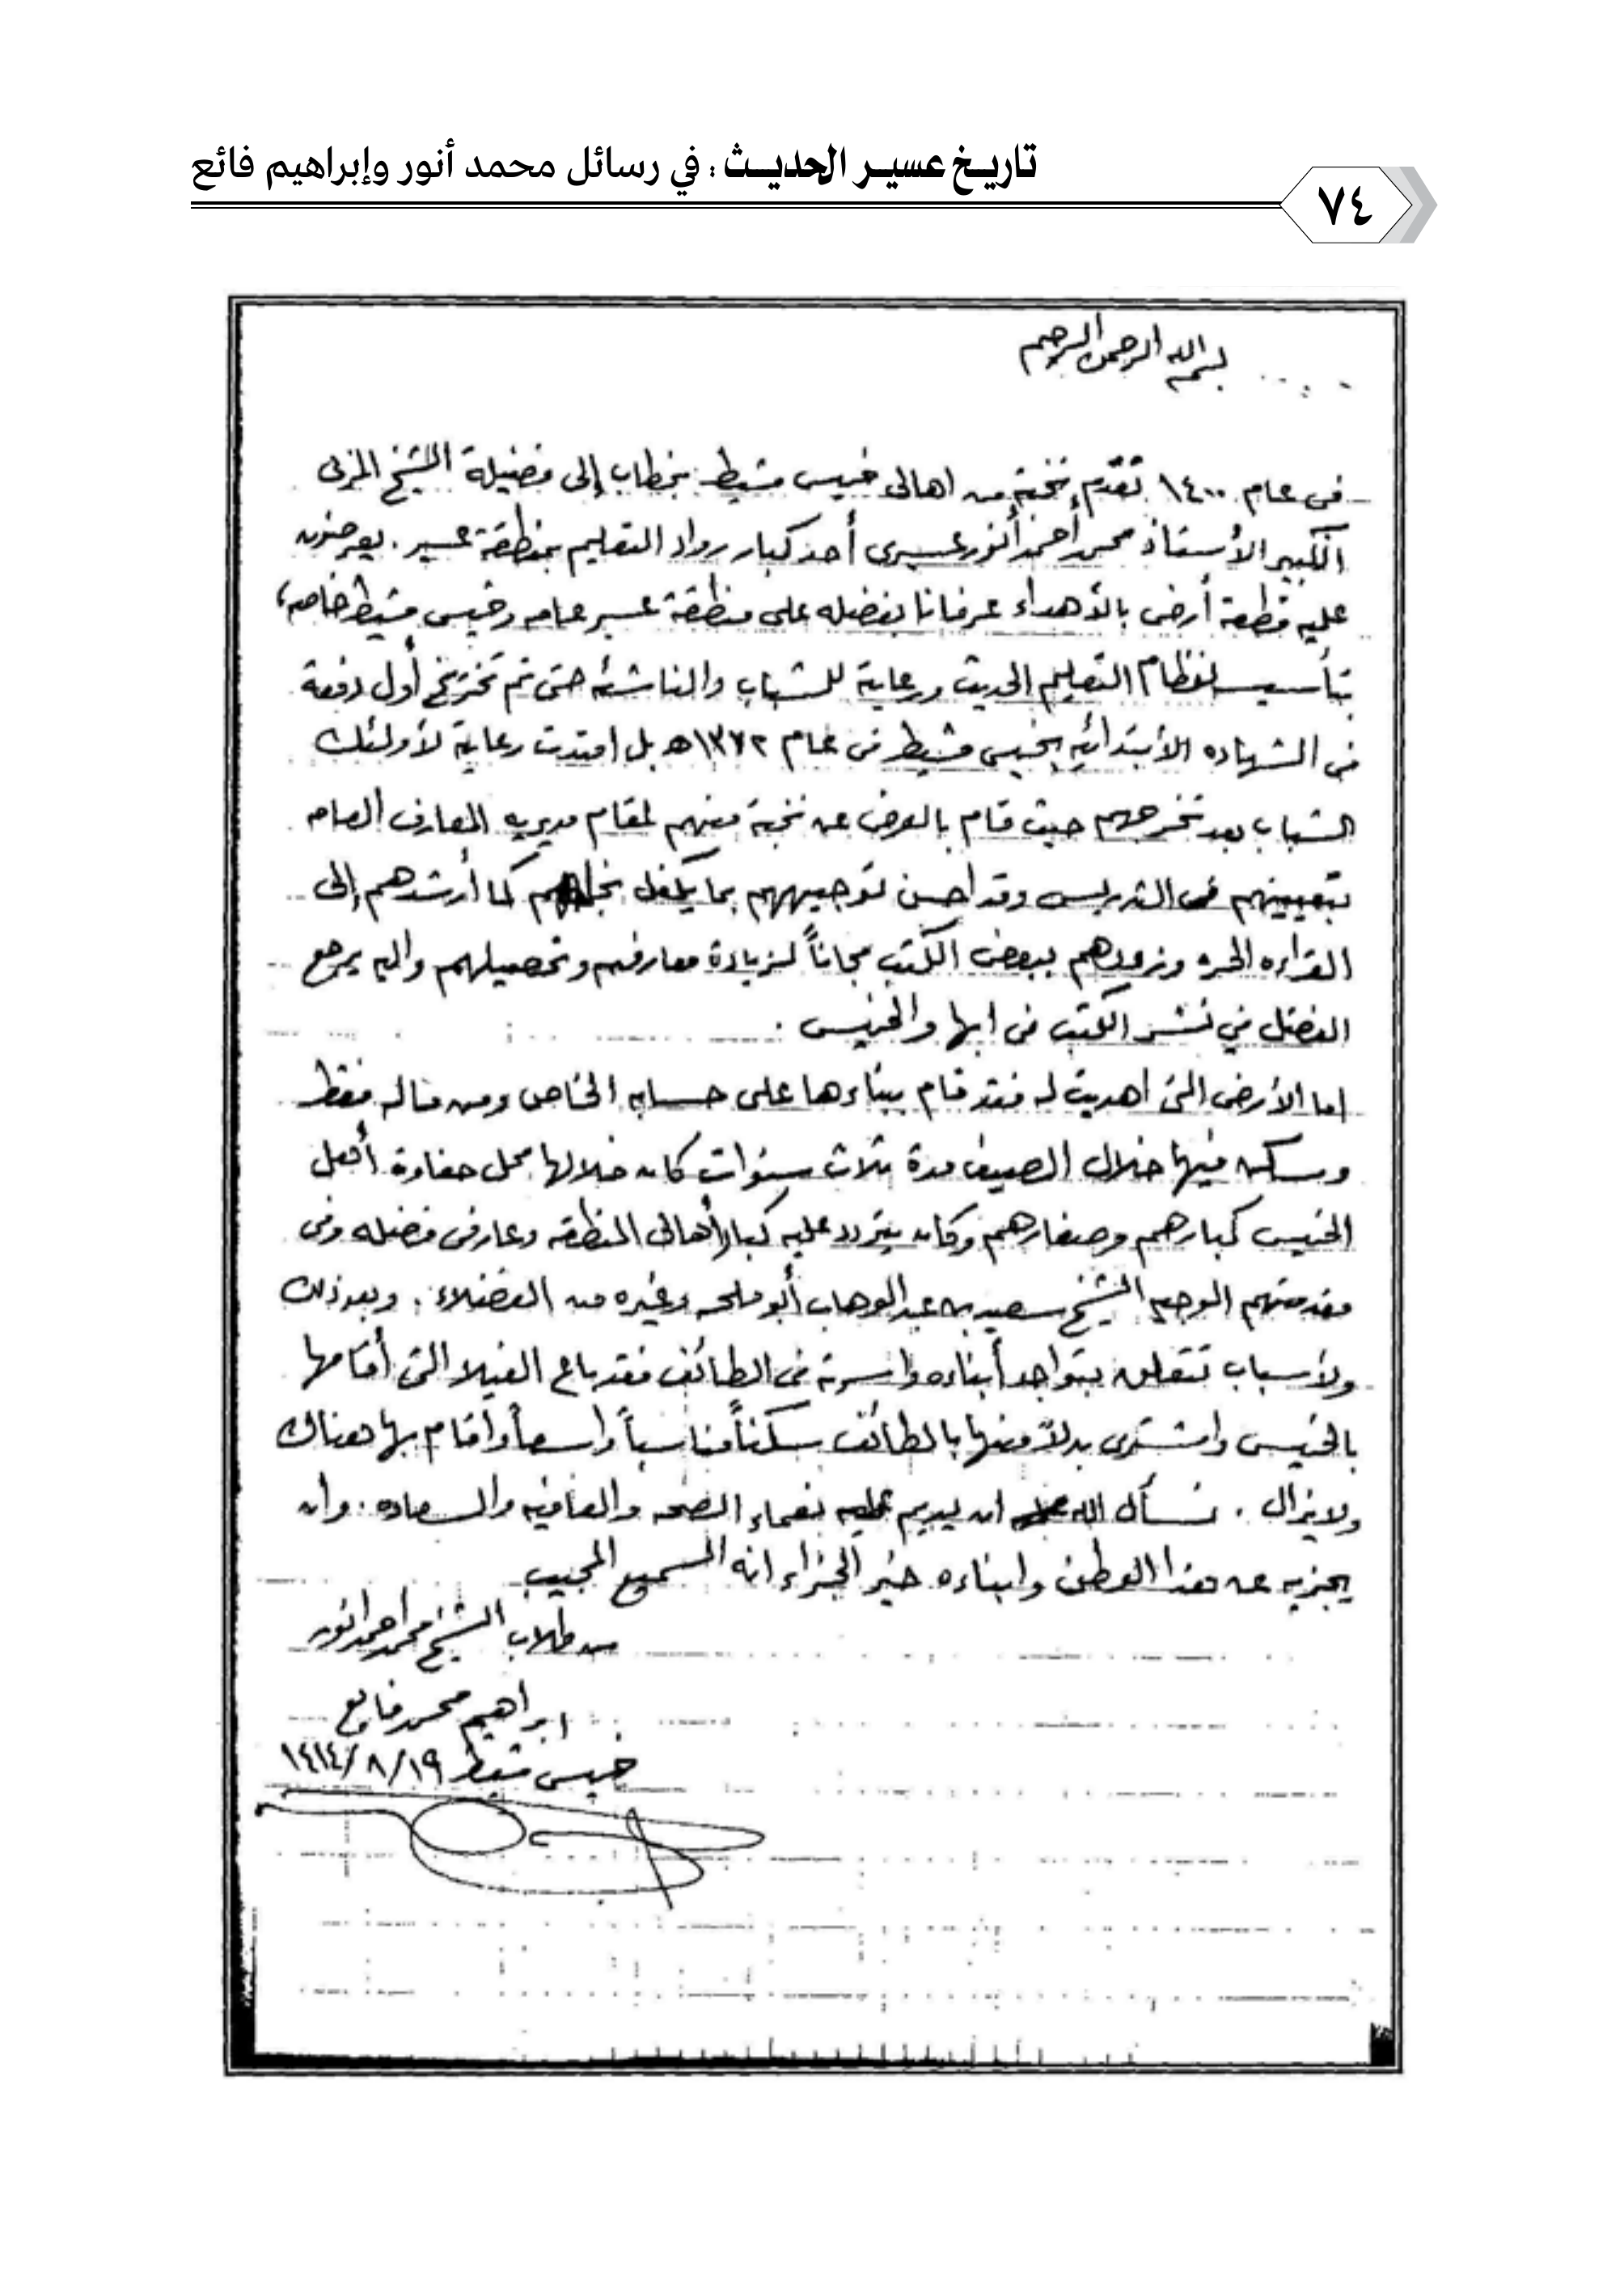 تاريخ عسير الحديث : في رسائل محمد أنور وإبراهيم فائع
٧٤
بسم الله الرحمن الرحيم
فى عام ١٤٠٠ تقدّم نخبة من اهالى خميس مشيط بخطاب إلى فضيلة الشيخ المربى
الكبير الأستاذ محمد أحمد أنور عسيرى أحد كبار رواد التعليم بمنطقة عسير . يعرضون
عليه قطعة أرض بالأهداء عرفانا بفضله على منطقة عسير عامه وخميس مشيط خاصه،
بتأسيس لنظام التعليم الحديث ورعاية للشباب والناشئه حتى تم تخريج أول دفعة
فى الشهاده الأبتدائيه بخميس مشيط فى عام ١٣٧٢هـ بل امتدت رعاية لأولئك
الشباب بعد تخرجهم حيث قام بالعرض عن نخبة منهم لمقام مديريه المعارف العامه
بتعيينهم فى التدريس وقد احسن توجيههم بما يكفل نجاحهم كما أرشدهم إلى
القراءه الحره وزودهم ببعض الكتب مجاناً لزيادة معارفهم وتحصيلهم واليه يرجع
الفضل في نشر الكتب فى ابها والخميس .
اما الأرض التى اهديت له فقد قام ببناءها على حسابه الخاص ومن ماله فقط
وسكن فيها خلال الصيف مدة ثلاث سنوات كان خلالها محل حفاوة أهل
الخميس كبارهم وصغارهم وكان يتردد عليه كبار أهالى المنطقه وعارفى فضله وفى
مقدمتهم الوجيه الشيخ سعيد بن عبد الوهاب أبو ملحه وغيره من الفضلاء . وبعد ذلك
ولأسباب تتعلق بتواجد أبناءه واسرته فى الطائف فقد باع الفيلا التى أقامها
بالخميس واشترى بدلاً منها بالطائف سكناً مناسباً واسعاً وأقام بها هناك
ولايزال . نسأل الله ان يديم عليه نعماء الصحه والعافيه والسعاده . وان
يجزيه عن هذا الوطن وابناءه خير الجزاء انه السميع المجيب
من طلاب الشيخ محمد احمد انور
ابراهيم محمد فايع
خميس مشيط ١٤١٤/٨/١٩